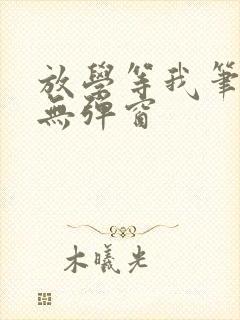 放學等我筆
無彈窗
木曦光